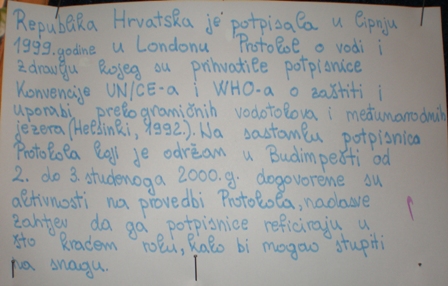 Republika Hrvatska je potpisala u lipnju
1999. godine u Londonu Protokol o vodi i
zdravlju kojeg su prihvatile potpisnice
Konvencije UN/CE-a i WHO-a o zaštiti i
uporabi prekograničnih vodotokova i međunarodnih
jezera (Helsinki, 1992.). Na sastanku potpisnica
Protokola koji je održan u Budimpešti od
2. do 3. studenoga 2000.g. dogovorene su
aktivnosti na provedbi Protokola, nadasve
zahtjev da ga potpisnice reficiraju u
što kraćem roku, kako bi mogao stupiti
na snagu.